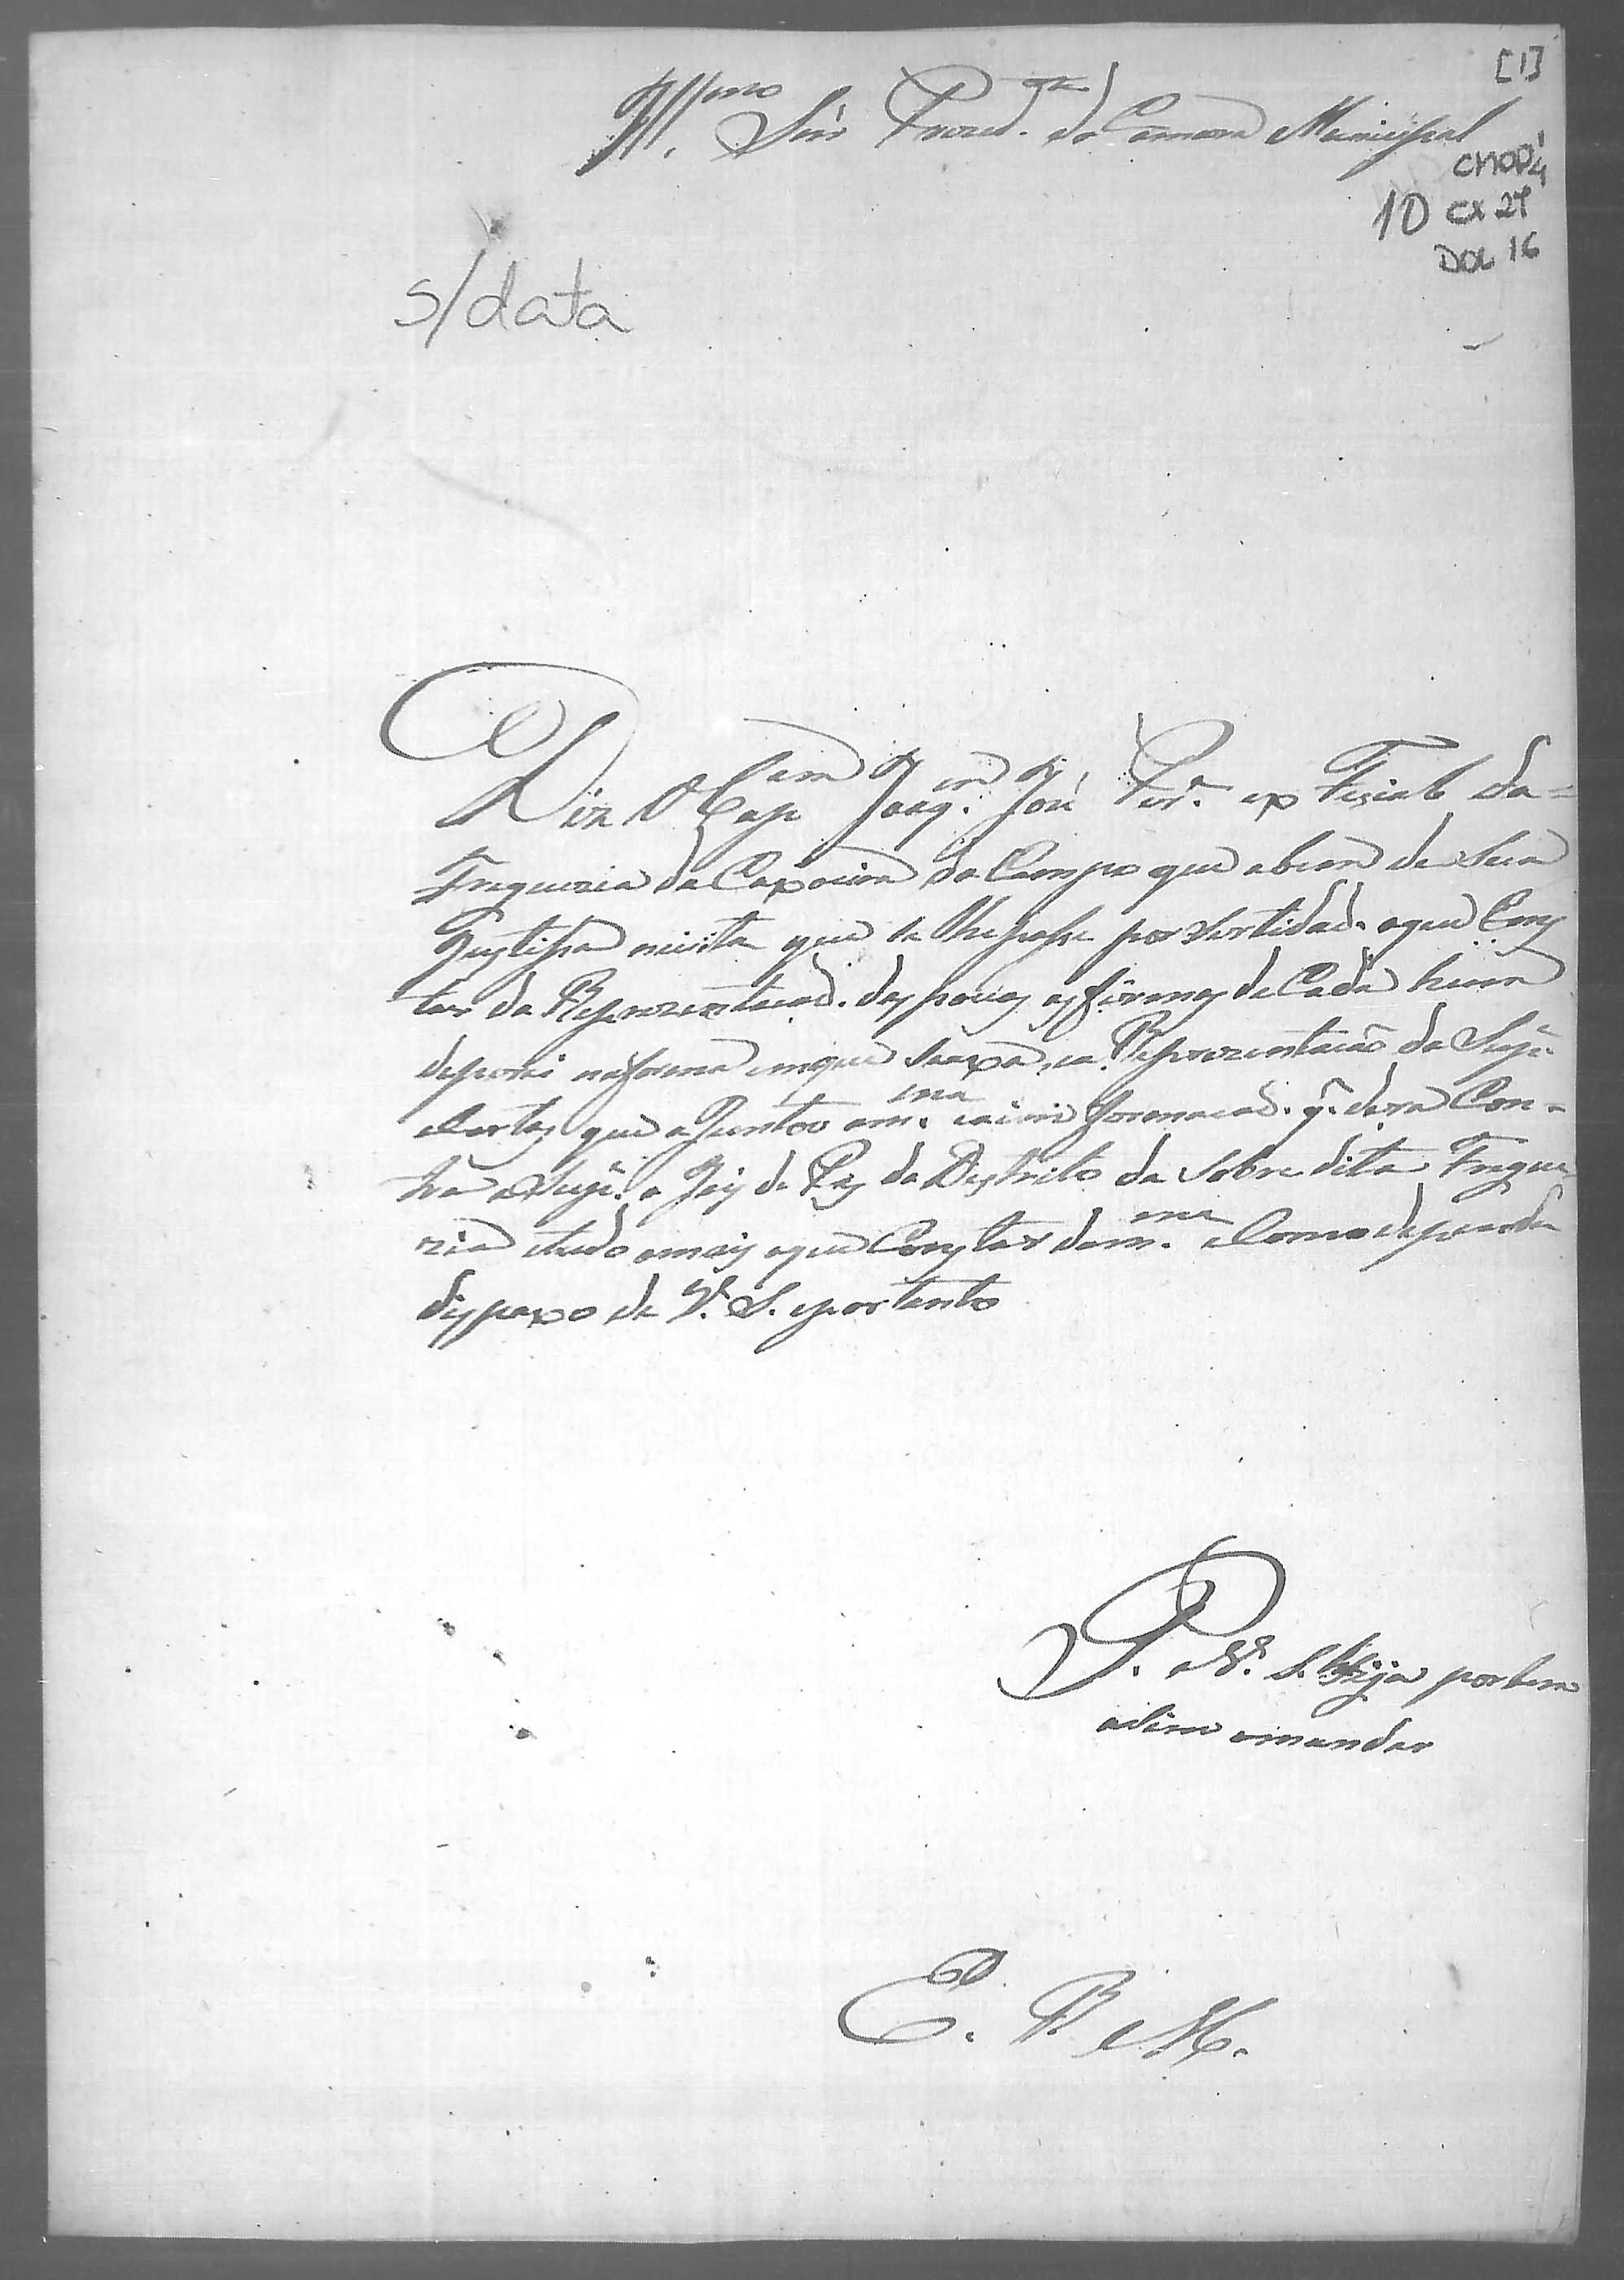 [1]
Illmo. Snr. Prezid.te da Camara Municipal
CMOP
10 CX 27
DOC 16
s/data
Diz O Cap.am Joaq.m José Per.a ex Fiscal da
Freguezia da Caxoeira do Campo que abem de Sua
Justissa nicista que se lhe passe por Sertidad. oque Cons
tar da Reprezentacad. dos povos as firmas de Cada hum
depoeis na forma em que seaxa, ea Reprezentacaõ do Sup.e
e Cartas que a Juntou am.ma e a imformacad. q. dera Con-
tra o Sup.e o Juis de Pas do Destrito da Sobre dita Fregue
zia e tudo omais oque Constar dam.ma e Como depende de
despaxo de V. S. portanto
P. a V. S. Seja por bem
acim omandar
E. R. M.